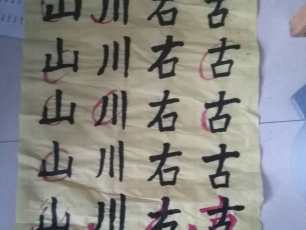 山川右古
山川右古
山川右古
山川右古
山川右古